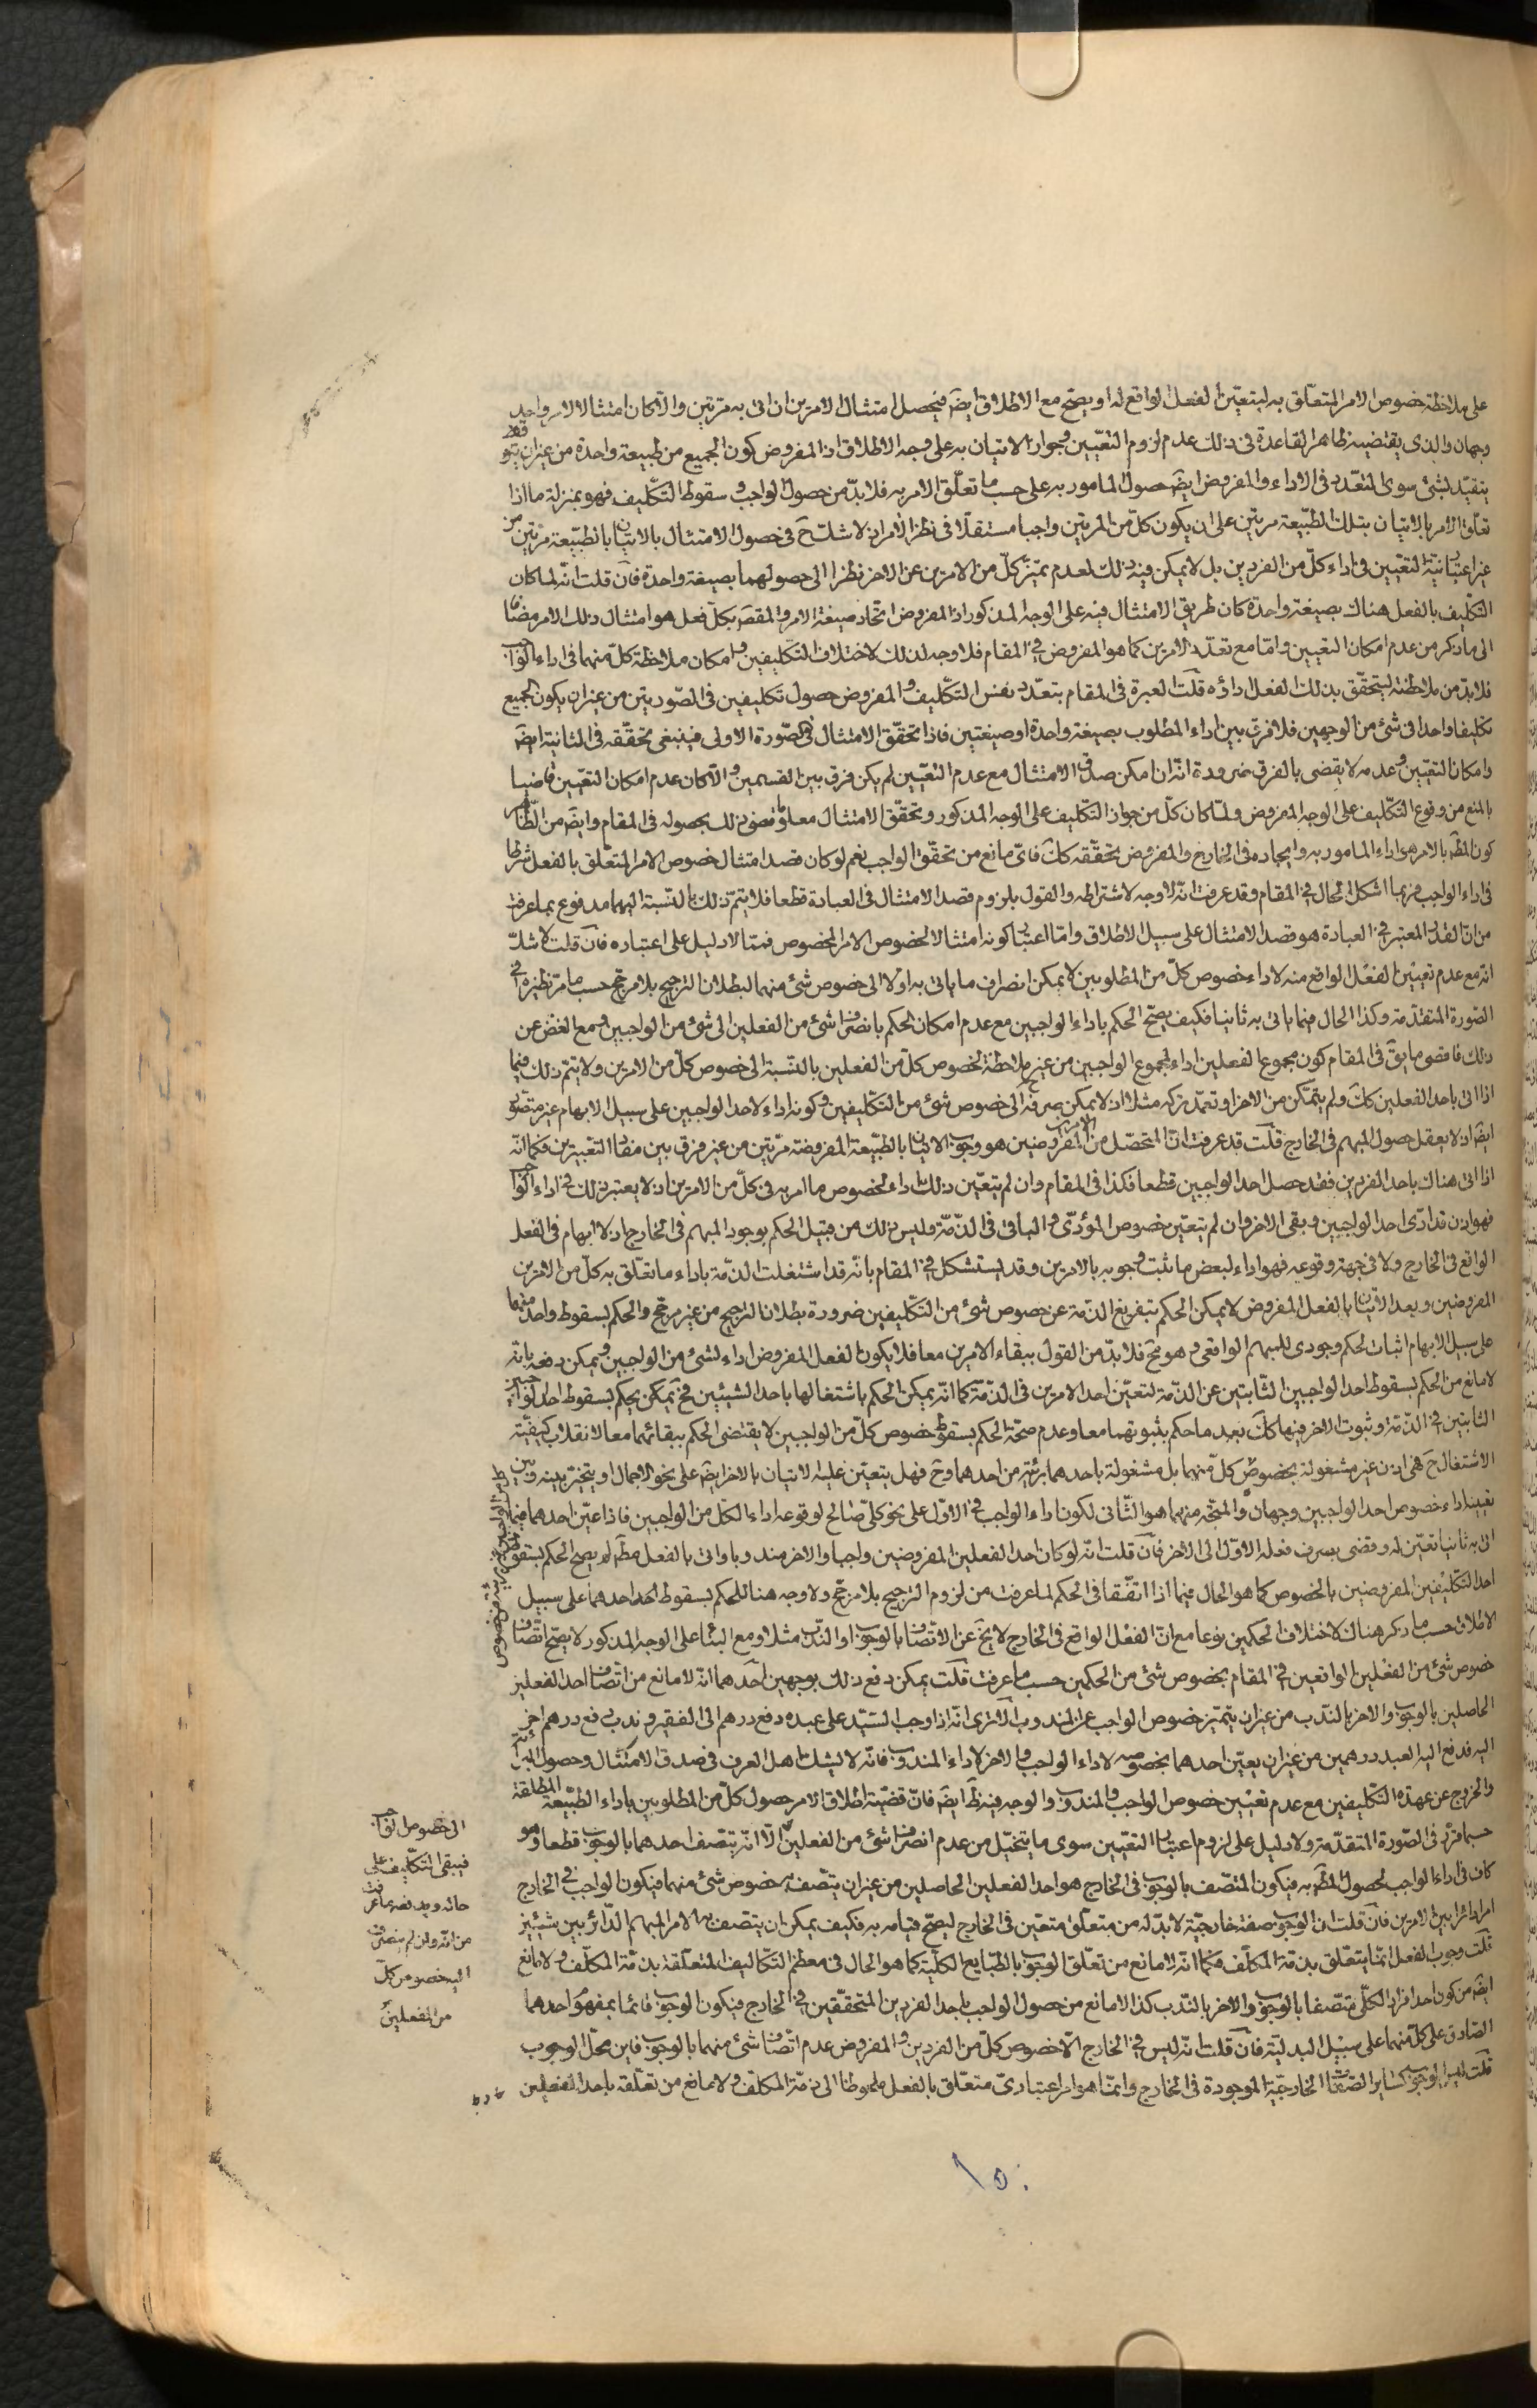 على ملاحظة خصوص الامر المتعلّق به ليتعيّن الفعل الواقع له او يصحّ مع الاطلاق ايضَ فيحصل امتثال الامرين ان اتى به مرّتين والّا كان امتثالا لامر واحد
وجهان والذى يقتضيه ظاهر القاعدة فى ذلك عدم لزوم التعيين وجواز الاتيان به على وجه الاطلاق اذ المفروض كون الجميع من طبيعة واحدة من غير ان يتقيّد
يتقيّد بشئ سوى التعدّد فى الاداء والمفروض ايضَ حصول المامور به على حسب ما تعلّق الامر به فلا بدّ من حصول الواجب و سقوط التكليف فهو بمنزلة ما اذا
تعلّق الامر بالاتيان بتلك الطبيعة مرتين على ان يكون كلّ من المرتين واجبا مستقلّا فى نظر الامر اذ لا شكّ حَ فى حصول الامتثال بالاتيان بالطبيعة مرّتين من
غير اعتبار نيّة التعيين فى اداء كلّ من الفردين بل لا يمكن فيه ذلك لعدم تميّز كلّ من الامرين عن الاخر نظرا الى حصولهما بصيغة واحدة فان قلت انّه لما كان
التكليف بالفعل هناك بصيغة واحدة كان طريق الامتثال فيه على الوجه المذكور اذ المفروض اتحاد صيغة الامر والمقصَ بكلّ فعل هو امتثال ذلك الامر مضافا
الى ما ذكر من عدم امكان التعيين وامّا مع تعدّد الامرين كما هو المفروض فى المقام فلا وجه لذلك لاختلاف التكليفين و امكان ملاحظة كلّ منهما فى اداء الواجب
فلا بدّ من ملاحظته ليتحقّق بذلك الفعل اداؤه قلت العبرة فى المقام بتعدّد نفس التكليف و المفروض حصول تكليفين فى الصّورتين من غير ان يكون الجميع
تكليفا واحدا فى شئ من الوجهين فلا فرق بين اداء المطلوب بصيغة واحدة او صيغتين فاذا تحقّق الامتثال فى الصّورة الاولى فينبغى تحقّقه فى الثانية ايضَ
وامكان التعيين وعدمه لا يقضى بالفرق ضرورة انّه ان امكن صدق الامتثال مع عدم التعيين لم يكن فرق بين القسمين و الّا كان عدم امكان التعيين قاضيا
بالمنع من وقوع التكليف على الوجه المفروض ولمّا كان كلّ من جواز التكليف على الوجه المذكور وتحقّق الامتثال معلوما قضى ذلك بحصوله فى المقام وايضَ من الظّاهر
كون المطَ بالامر هو اداء المامور به وايجاده فى الخارج والمفروض تحقّقه كَكَ فاىّ مانع من تحقّق الواجب نعم لو كان قصد امتثال خصوص الامر المتعلّق بالفعل شرطا
فى اداء الواجب فربما اشكل الحال فى المقام وقد عرفت انّه لا وجه لاشتراطه والقول بلزوم قصد الامتثال فى العبادة قطعا فلا يتمّ ذلك بالنّسبة اليها مدفوع بما عرفت
من انّ القدر المعتبر فى العبادة هو قصد الامتثال على سبيل الاطلاق وامّا اعتبار كونه امتثالا لخصوص الامر المخصوص فممّا لا دليل على اعتباره فان قلت لا شكّ
انّه مع عدم تعيين الفعل الواقع منه لاداء خصوص كلّ من المطلوبين لا يمكن انصراف ما ياتى به اوّلا الى خصوص شئ منهما لبطلان الترجيح بلا مرجّح حسب ما مرّ نظيره فى
الصّورة المتقدّمة وكذا الحال فيما ياتى به ثانيا فكيف يصحّ الحكم باداء الواجبين مع عدم امكان الحكم بانصراف شئ من الفعلين الى شئ من الواجبين و مع الغضّ عن
ذلك فاقصى ما يقَ فى المقام كون مجموع الفعلين اداء لمجموع الواجبين من غير ملاحظة لخصوص كلّ من الفعلين بالنّسبة الى خصوص كلّ من الامرين ولا يتمّ ذلك فيما
اذا اتى باحد الفعلين كَكَ ولم يتمكّن من الاخر او تعمّد تركه مثلا اذ لا يمكن صرفه الى خصوص شئ من التكليفين و كونه اداء لاحد الواجبين على سبيل الابهام غير متصوّر
ايضَ اذ لا يعقل حصول المبهم فى الخارج قلت قد عرفت انّ المتحصّل من الامرين المفروضين هو وجوب الاتيان بالطّبيعة المفروضة مرّتين من غير فرق بين مفاد التعبيرين فكما انّه
اذا اتى هناك باحد الفردين فقد حصل احد الواجبين قطعا فكذا فى المقام وان لم يتعيّن ذلك باداء خصوص ما امر به فى كلّ من الامرين اذ لا يعتبر ذلك فى اداء الواجب
فهو اذن قد ادّى احد الواجبين و بقى الاخر وان لم يتعيّن خصوص المؤدّى و الباقى فى الذّمّة وليس ذلك من قبيل الحكم بوجود المبهم فى الخارج اذ لا ابهام فى الفعل
الواقع فى الخارج ولا فى جهة وقوعه فهو اداء لبعض ما ثبت وجوبه بالامرين وقد يستشكل فى المقام بانّه قد اشتغلت الذمّة باداء ما تعلّق به كلّ من الامرين
المفروضين وبعد الاتيان بالفعل المفروض لا يمكن الحكم بتفريغ الذمّة عن خصوص شئ من التكليفين ضرورة بطلان الترجيح من غير مرجّح والحكم بسقوط واحد منهما
على سبيل الابهام اثبات لحكم وجودى للمبهم الواقعى و هو مح فلا بدّ من القول ببقاء الامرين معا فلا يكون الفعل المفروض اداء لشئ من الواجبين و يمكن دفعه بانّه
لا مانع من الحكم بسقوط احد الواجبين الثّابتين عن الذمّة لتعيّن احد الامرين فى الذمّة كما انّه يمكن الحكم باشتغالها باحد الشيئين فحَ يمكن يحكم بسقوط احد الواجبين
الثابتين فى الذمّة و ثبوت الاخر فيها كَكَ بعد ما حكم بثبوتهما معا وعدم صحّة الحكم بسقوط خصوص كلّ من الواجبين لا يقتضى الحكم ببقائهما معا لانقلاب كيفيّة
الاشتغال حَ فهى اذن غير مشغولة بخصوص كلّ منهما بل مشغولة باحدهما برئة من احدهما وحَ فهل يتعيّن عليه الاتيان بالاخر ايضَ على نحو الاجمال او يتخيّر بينه وبين
تعيينه اداء خصوص احد الواجبين وجهان و المتّجه منهما هو الثّانى لكون اداء الواجب فى الاوّل على نحو كلىّ صالح لوقوعه اداء لكلّ من الواجبين فاذا عيّن احدهما فيما
اتى به ثانيا تعيّن له وقضى بصرف فعله الاوّل الى الاخر فان قلت انّه لو كان احد الفعلين المفروضين واجبا والاخر مندوبا واتى بالفعل مطَم لم يصح الحكم بسقوط
احد التكليفين المفروضين بالخصوص كما هو الحال فيما اذا اتّفقا فى الحكم لما عرفت من لزوم الترجيح بلا مرجّح ولا وجه هنا للحكم بسقوط احدهما على سبيل
الاطلاق حسب ما ذكر هناك لاختلاف الحكمين نوعا مع انّ الفعل الواقع فى الخارج لا يخَ عن الاتّصاف بالوجوب او الندب مثلا و مع البناء على الوجه المذكور لا يصحّ اتّصاف
خصوص شئ من الفعلين الواقعين فى المقام بخصوص شئ من الحكمين حسب ما عرفت قلت يمكن دفع ذلك بوجهين احدهما انّه لا مانع من اتّصاف احد الفعلين
الحاصلين بالوجوب والاخر بالنّدب من غير ان يتميّز خصوص الواجب عن المندوب الا ترى انّه اذا وجب السّيّد على عبده دفع درهم الى الفقير و ندب دفع درهم اخر
اليه فدفع اليه العبد درهمين من غير ان يعيّن احدهما بخصوصه لاداء الواجب و الاخر لاداء المندوب فانّه لا يشكّ اهل العرف فى صدق الامتثال وحصول البراءة
والخروج عن عهدة التكليفين مع عدم تعيين خصوص الواجب و المندوب والوجه فيه ظَ ايضَ فانّ قضيّة اطلاق الامر حصول كلّ من المطلوبين باداء الطّبيعة المطلقة
حسبما قرّر فى الصّورة المتقدّمة ولا دليل على لزوم اعتبار التعيين سوى ما يتخيّل من عدم انصراف شئ من الفعلين الّا انّه يتّصف احدهما بالوجوب قطعا وهو
كان فى اداء الواجب لحصول المطَ به فيكون المتّصف بالوجوب فى الخارج هو احد الفعلين الحاصلين من غير ان يتّصف به خصوص شئ منهما فيكون الواجب فى الخارج
امرا دائرا بين الامرين فان قلت ان الوجوب صفة خارجيّة لا بدّ له من متعلّق متعيّن فى الخارج ليصحّ قيامه به فكيف يمكن ان يتّصف به الامر المبهم الدّائر بين شيئين
قلت وجوب الفعل انّما يتعلّق بذمّة المكلّف فكما انّه لا مانع من تعلّق الوجوب بالطّبايع الكليّة كما هو الحال فى معظم التّكاليف المتعلّقة بذمّة المكلّف و لا مانع
ايضَ من كون احد افراد الكلّى متّصفا بالوجوب والاخر بالنّدب كذا لا مانع من حصول الواجب باحد الفردين المتحقّقين فى الخارج فيكون الوجوب قائما بمفهوم احدهما
الصّادق على كلّ منهما على سبيل البدليّة فان قلت انّه ليس فى الخارج الّا خصوص كلّ من الفردين و المفروض عدم اتّصاف شئ منهما بالوجوب فاين محلّ الوجوب
قلت ليس الوجوب كساير الصّفات الخارجيّة الموجودة فى الخارج وانّما هو امر اعتبارىّ متعلّق بالفعل ملحوظا الى ذمّة المكلّف و لا مانع من تعلّقه باحد الفعلين
الى خصوص الواجب
فيبقى التكليف على
حاله ويدفعه ما عرفت
من انّه وان لم ينصرف
اليه خصوص كلّ
من الفعلين
١٥٠